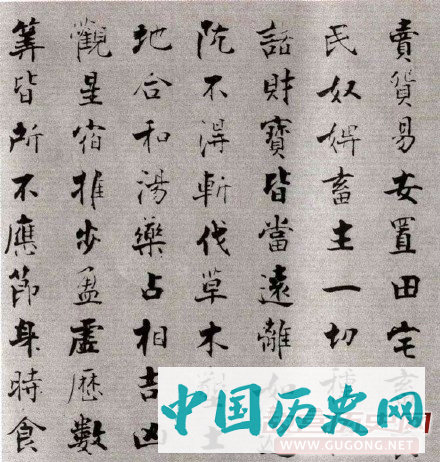 賣貿易安置田宅
民奴婢畜生一切種
諸財寶皆當遠離如
阬不得斬伐草木
地合和湯藥占相吉凶
觀星宿推步盈虛歷數
筭皆所不應節身時食
中国历史网
WWW.GUGONG.NET